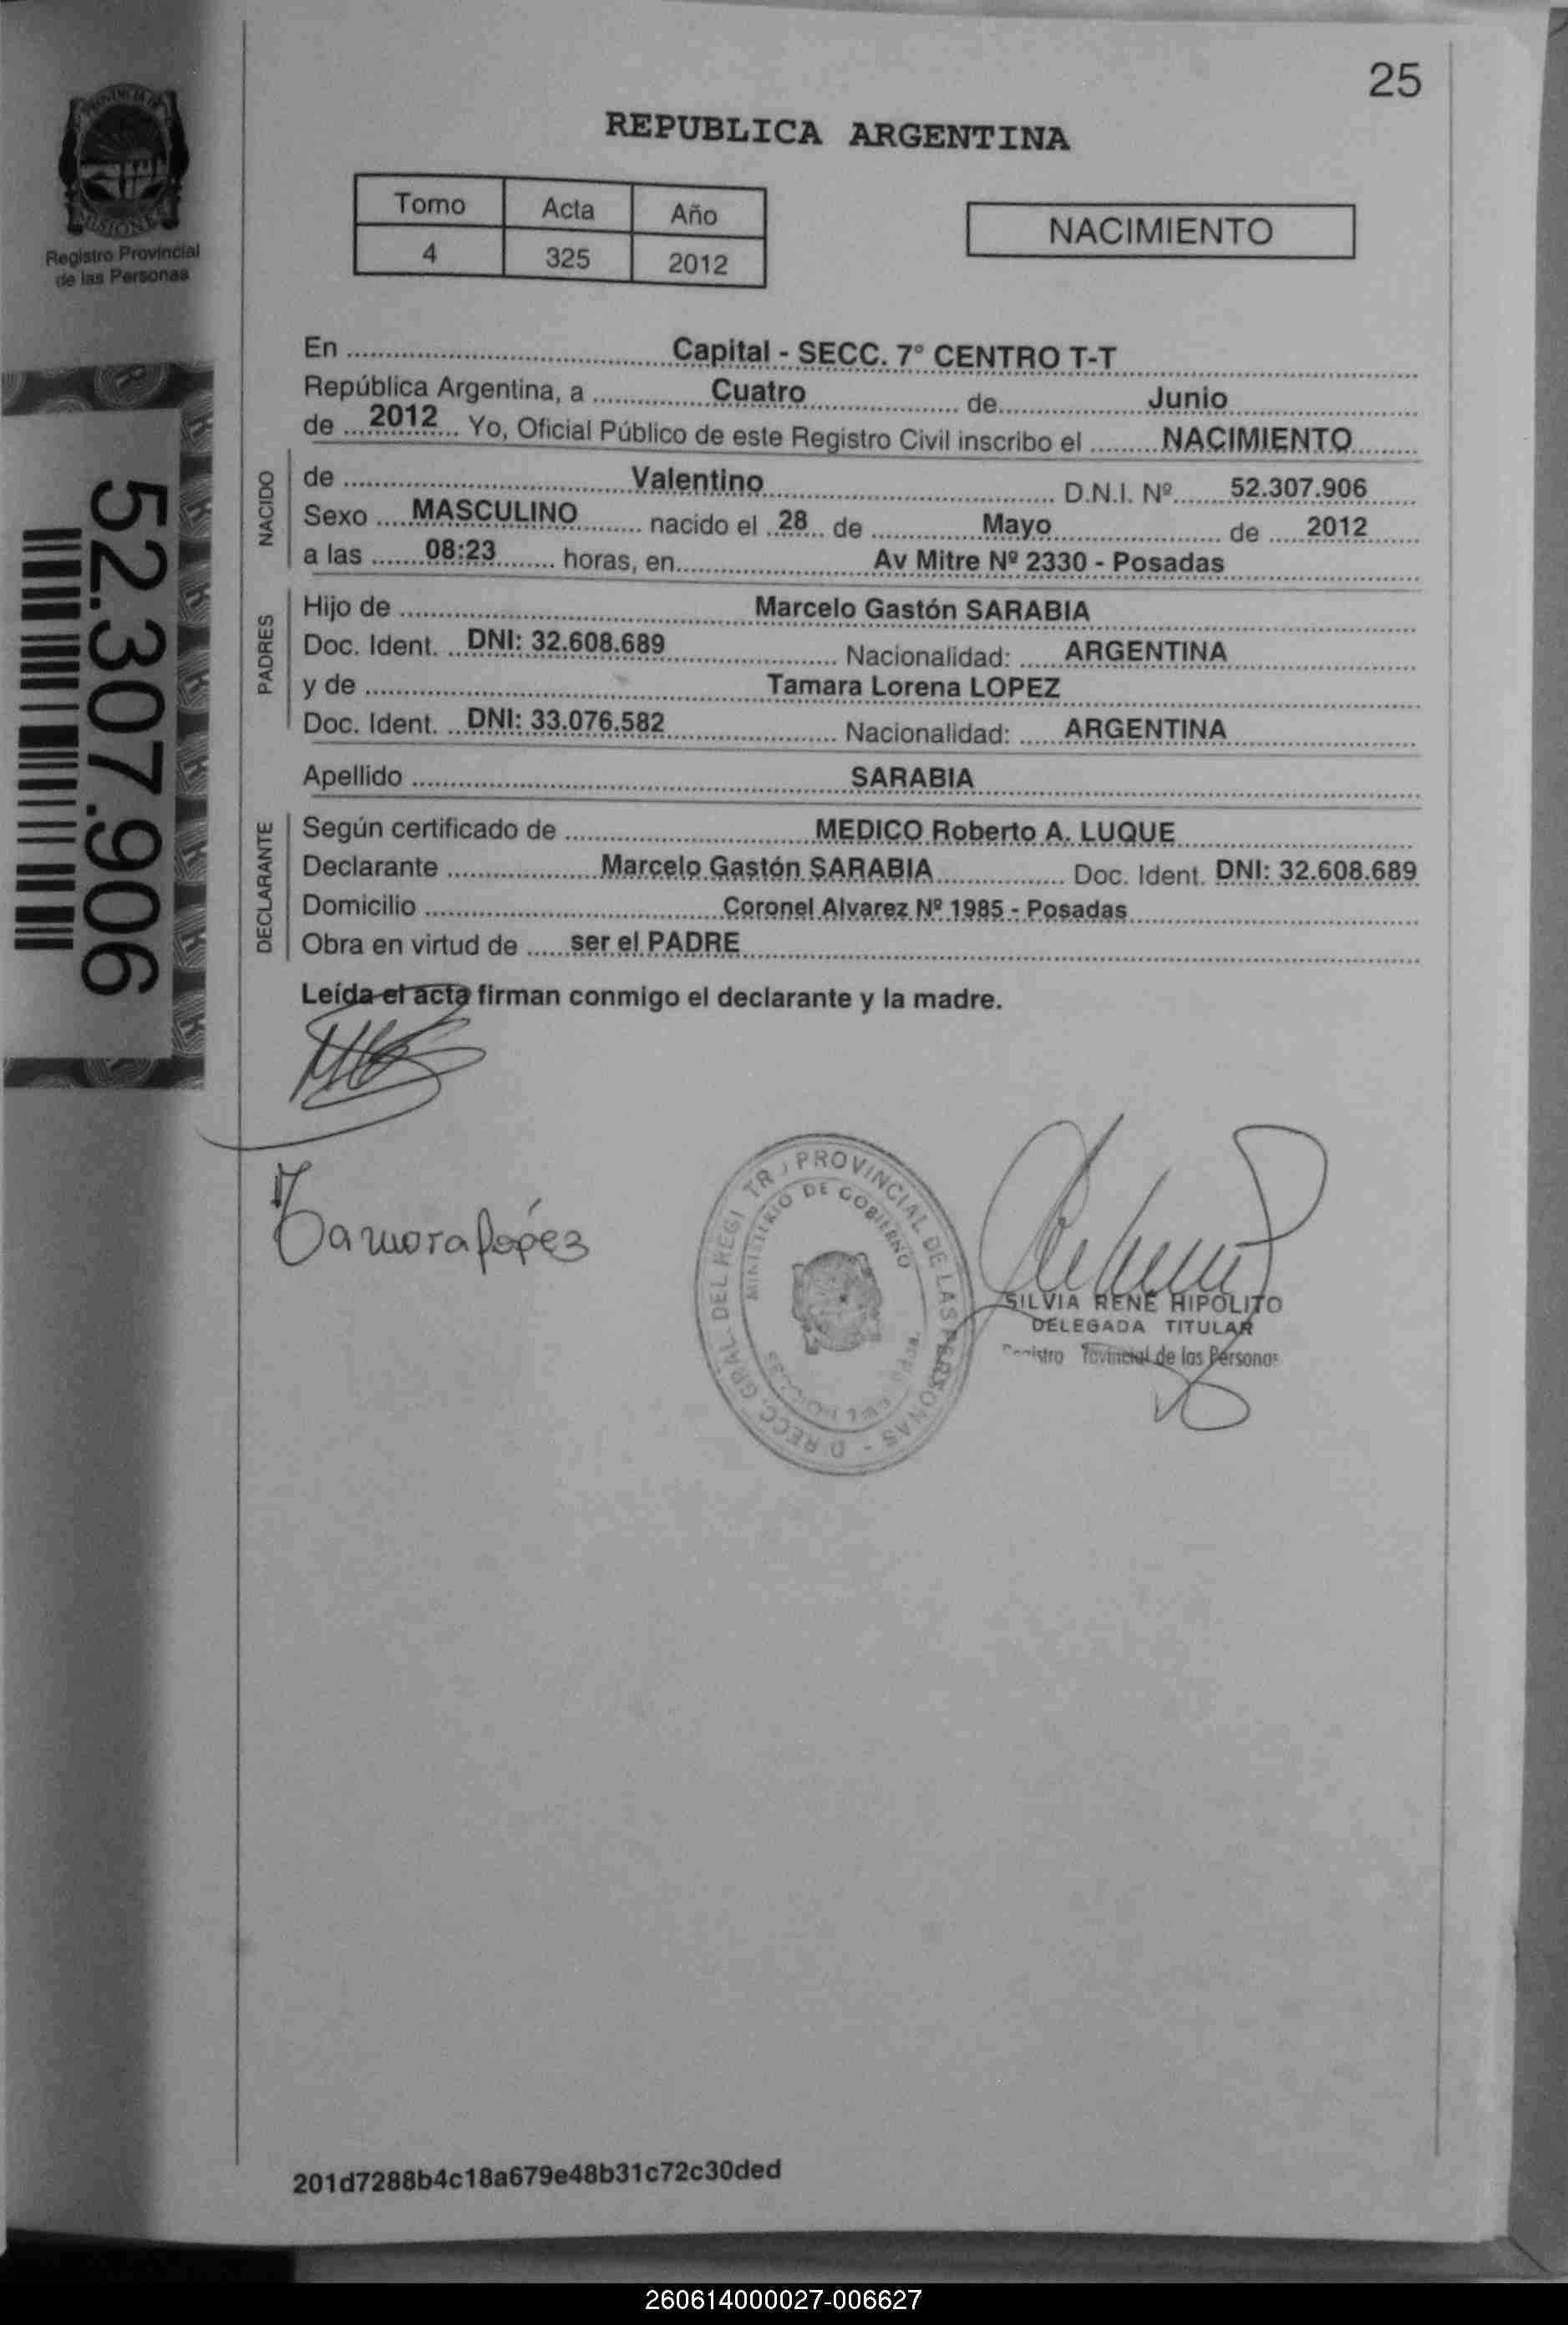 25
PROVINCIA DE
MISIONES
Registro Provincial
de las Personas
REPUBLICA ARGENTINA
Tomo Acta Año
4 325 2012
NACIMIENTO
En Capital - SECC. 7° CENTRO T-T
República Argentina, a Cuatro de Junio
de 2012 Yo, Oficial Público de este Registro Civil inscribo el NACIMIENTO
NACIDO
de Valentino D.N.I. Nº 52.307.906
Sexo MASCULINO nacido el 28 de Mayo de 2012
a las 08:23 horas, en Av Mitre Nº 2330 - Posadas
PADRES
Hijo de Marcelo Gastón SARABIA
Doc. Ident. DNI: 32.608.689 Nacionalidad: ARGENTINA
y de Tamara Lorena LOPEZ
Doc. Ident. DNI: 33.076.582 Nacionalidad: ARGENTINA
Apellido SARABIA
DECLARANTE
Según certificado de MEDICO Roberto A. LUQUE
Declarante Marcelo Gastón SARABIA Doc. Ident. DNI: 32.608.689
Domicilio Coronel Alvarez Nº 1985 - Posadas
Obra en virtud de ser el PADRE
52.307.906
Leída el acta firman conmigo el declarante y la madre.
Tamara López
PROVINCIAL DE LAS PERSONAS
MINISTERIO DE GOBIERNO
SILVIA RENÉ HIPOLITO
DELEGADA TITULAR
de las Personas
201d7288b4c18a679e48b31c72c30ded
260614000027-006627